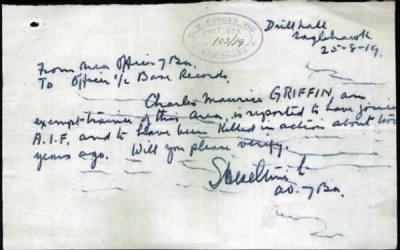 103/19
Drill Hall
Eaglehawk
25-8-19.
From Area Officer 7 Bn.
To Officer i/c Base Records.
Charles Maurice GRIFFIN, an
exempt trainee of this Area, is reported to have joined
A.I.F. and to have been killed in action about two
years ago. Will you please verify.
Lt
a.o. 7 Bn.